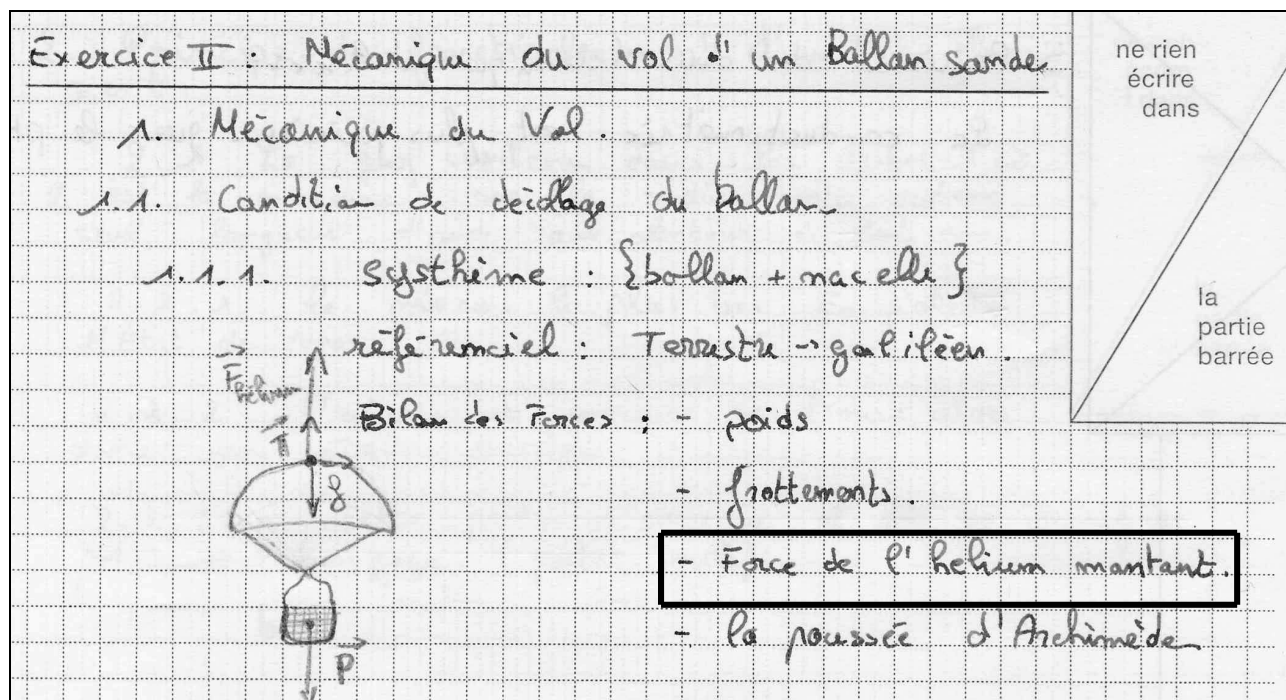 Exercice II : Mécanique du vol d'un Ballon sonde
ne rien
écrire
dans
1. Mécanique du Vol.
1.1. Condition de décollage du ballon
1.1.1. systhème : {ballon + nacelle}
référenciel : Terrestre → galiléen.
F helium
Bilan des Forces : - poids
π
- frottements.
f
- Force de l'helium montant.
- la poussée d'Archimède
P
la
partie
barrée